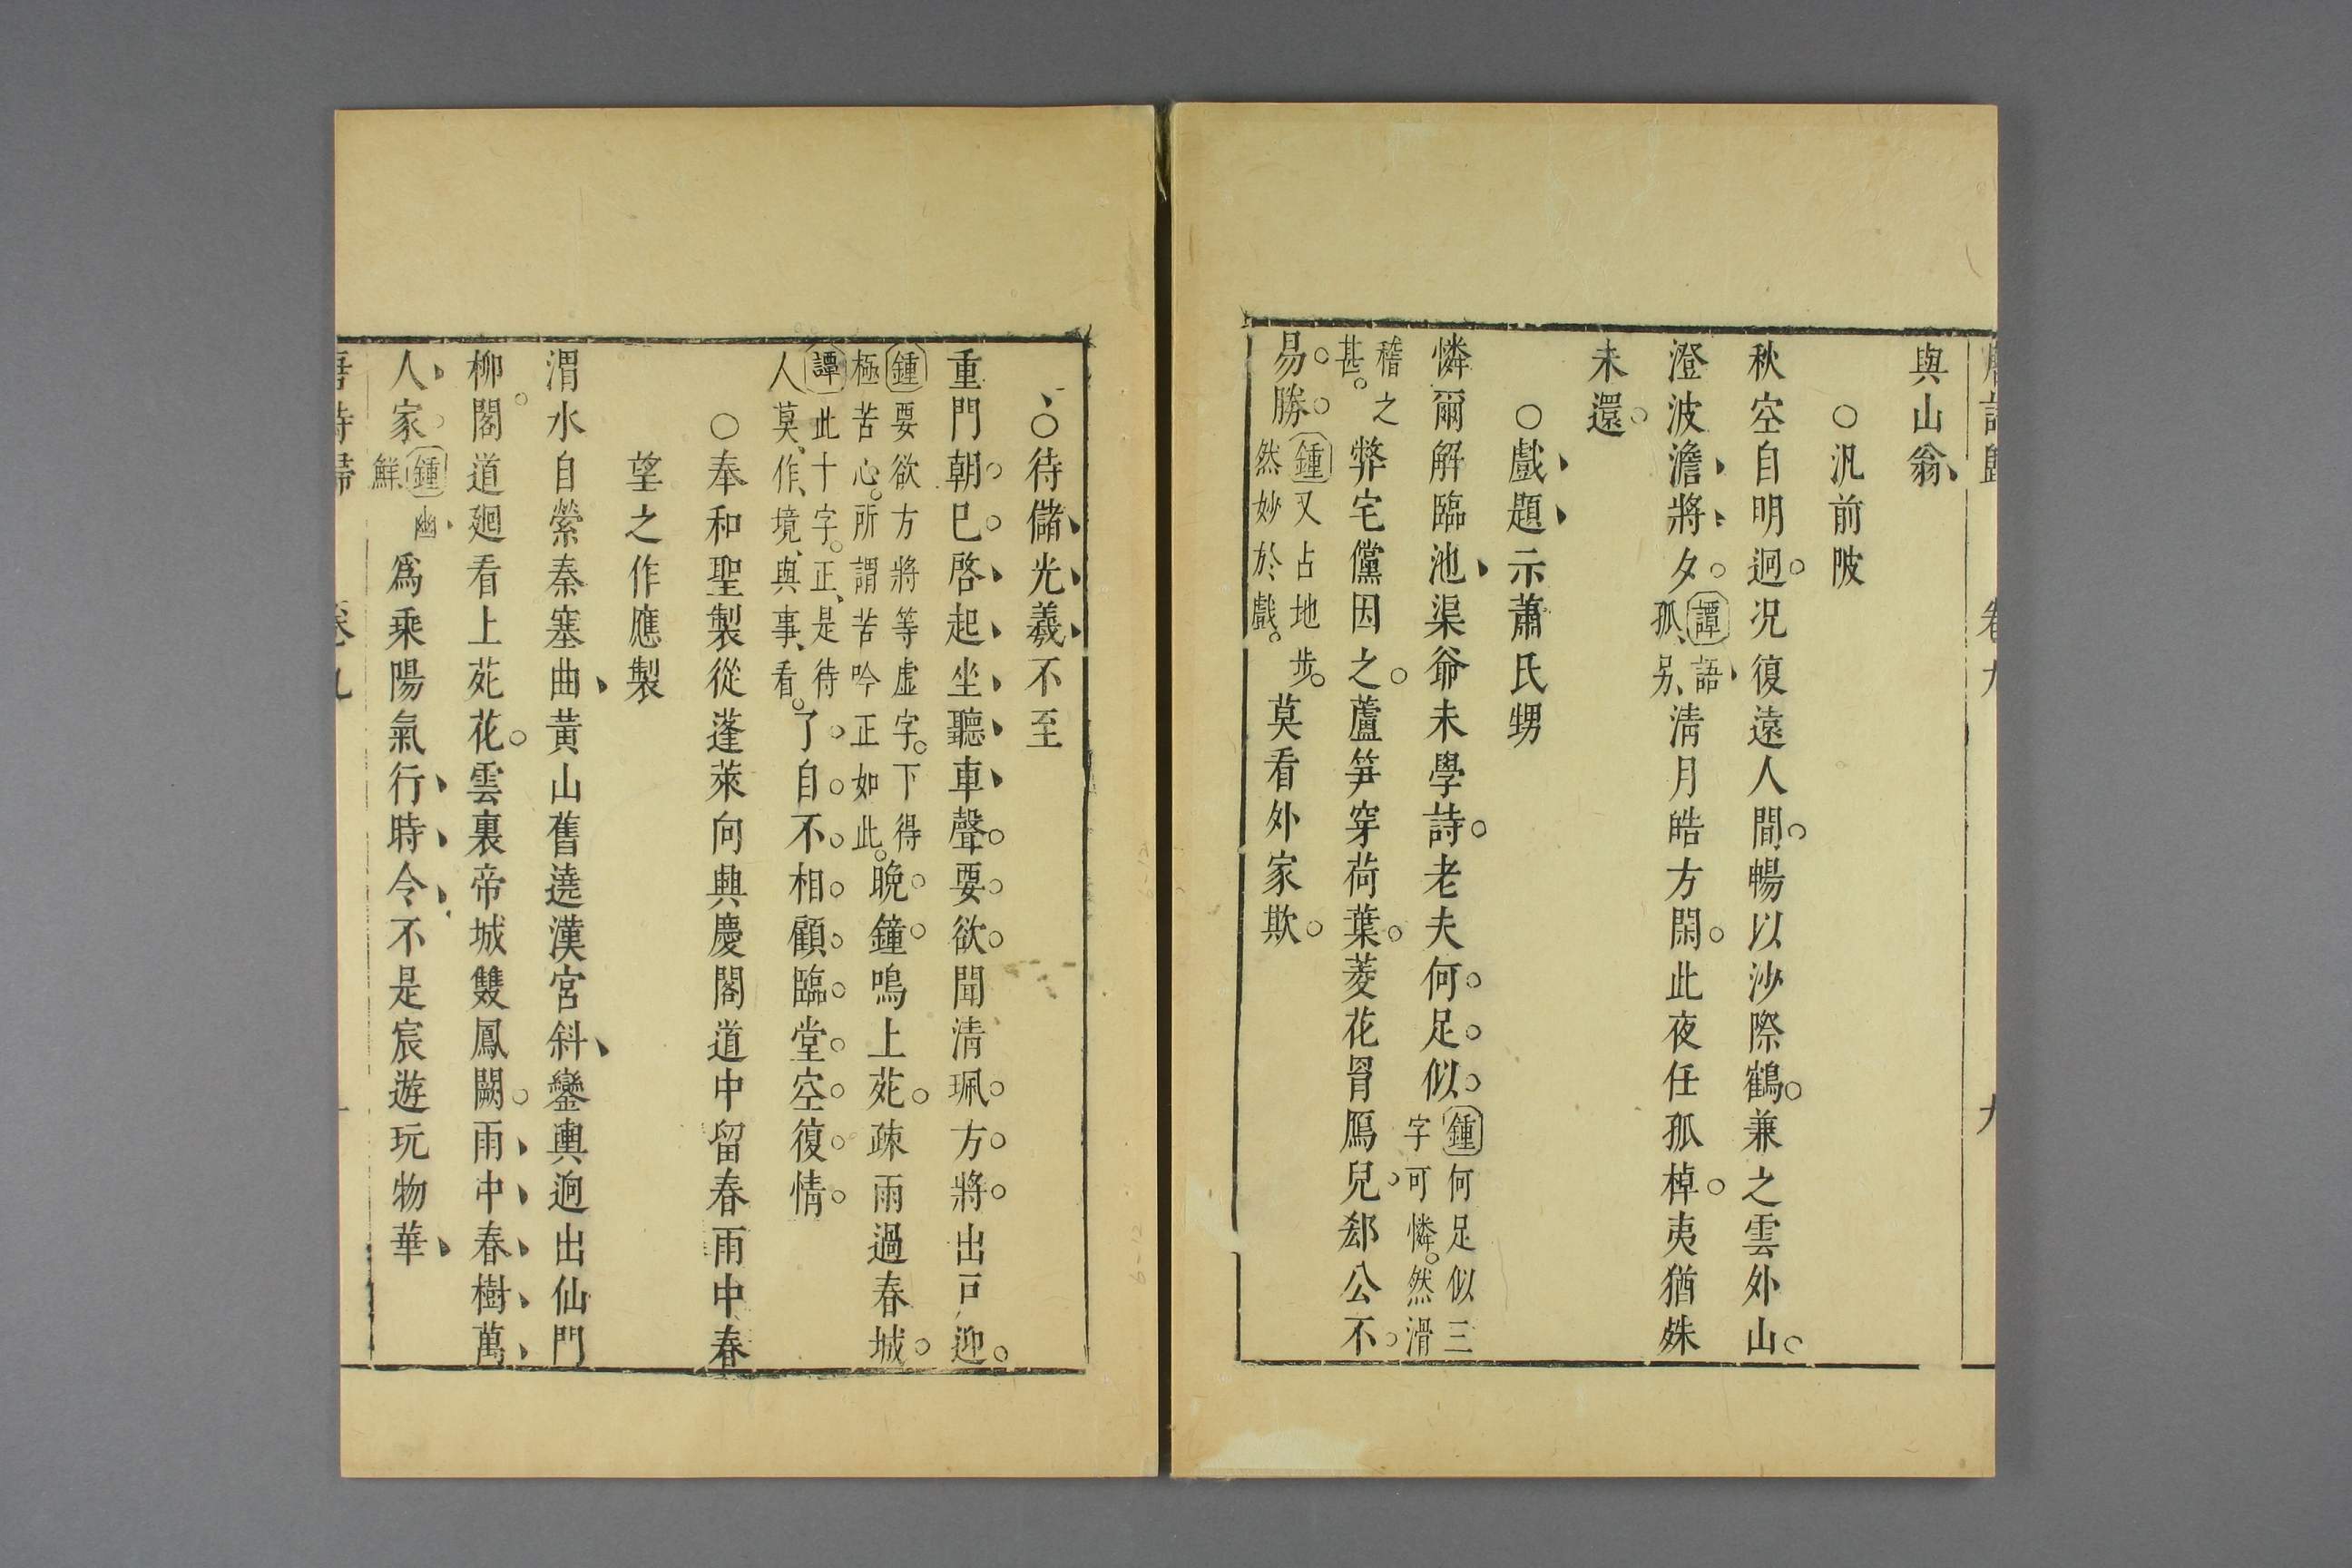 唐詩歸 卷九 九
與山翁
○汎前陂
秋空自明迥况復遠人間暢以沙際鶴兼之雲外山
澄波澹將夕譚語孤另清月皓方閑此夜任孤棹夷猶姝
未還
○戲題示蕭氏甥
憐爾解臨池渠爺未學詩老夫何足似鍾何足似三字可憐。然滑
稽之甚。弊宅儻因之蘆笋穿荷葉菱花罥鴈兒郄公不
易勝鍾又占地步。然妙於戲。莫看外家欺
○待儲光羲不至
重門朝已啓起坐聽車聲要欲聞清珮方將出戸迎
鍾要欲方將等虛字。下得極苦心。所謂苦吟正如此。晩鐘鳴上苑疎雨過春城
譚此十字。正是待人莫作境與事看。了自不相顧臨堂空復情
○奉和聖製從蓬萊向興慶閣道中留春雨中春
望之作應製
渭水自縈秦塞曲黃山舊遶漢宮斜鑾輿迥出仙門
柳閣道廻看上苑花雲裏帝城雙鳳闕雨中春樹萬
人家鍾幽鮮爲乘陽氣行時令不是宸遊玩物華
唐詩歸 卷九